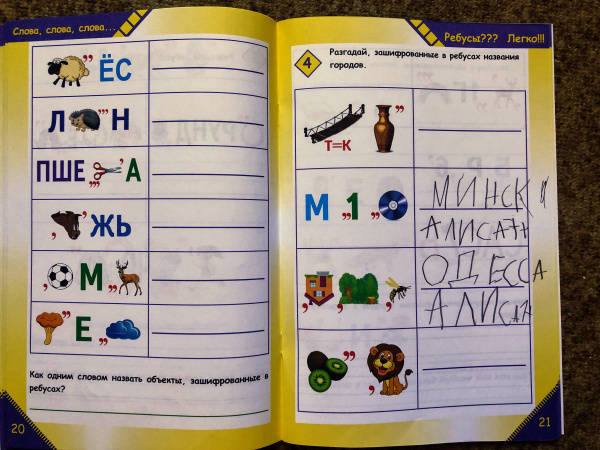 Слова, слова, слова...
ЁС
Л ,,, Н
ПШЕ ,,, ' А
, ЖЬ
, М ,,
,, Е ,
Как одним словом назвать объекты, зашифрованные в
ребусах?
20
Ребусы??? Легко!!!
4 Разгадай, зашифрованные в ребусах названия
городов.
,,
Т=К
М ,,1 ,,
МИНСК И
АЛИСА
ОДЕССА
АЛИСА
,, ,
21